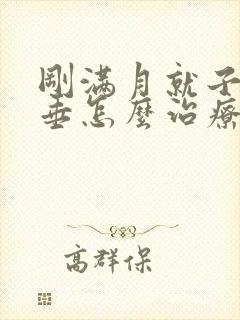 剛满月就子
垂怎麼治療
高群保